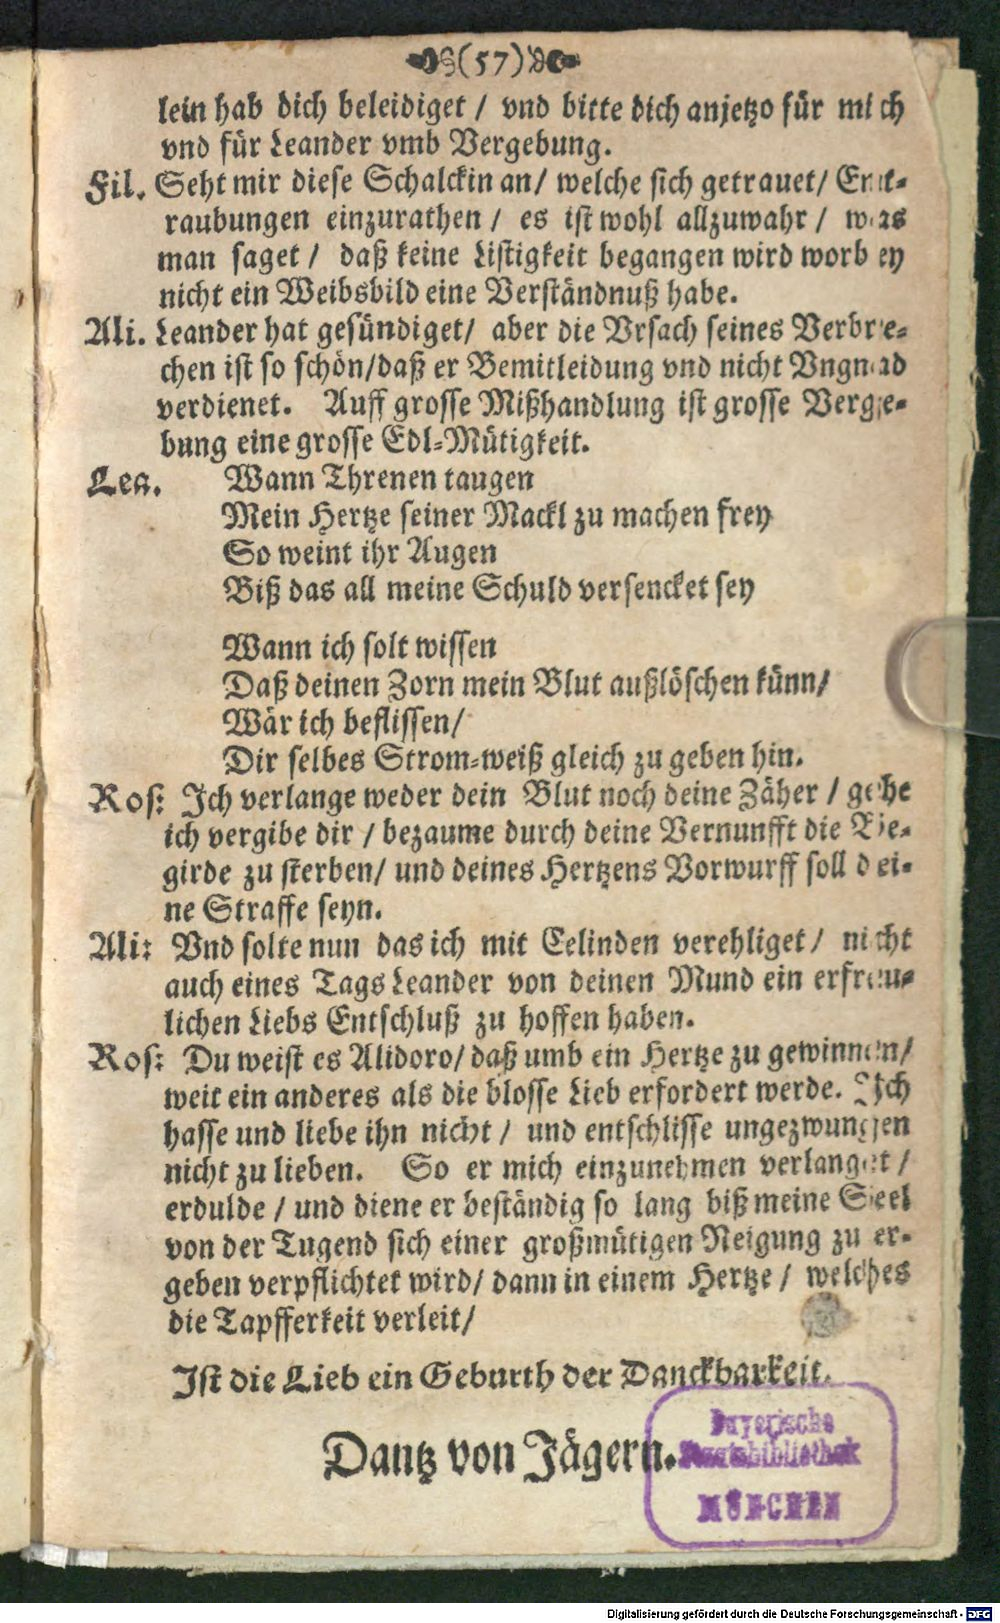 (57)
lein hab dich beleidiget / vnd bitte dich anjetzo für mich
vnd für Leander vmb Vergebung.
Fil. Seht mir diese Schalckin an / welche sich getrauet / Ent-
raubungen einzurathen / es ist wohl allzuwahr / was
man saget / daß keine Listigkeit begangen wird worbey
nicht ein Weibsbild eine Verständnuß habe.
Ali. Leander hat gesündiget / aber die Vrsach seines Verbre-
chen ist so schön / daß er Bemitleidung vnd nicht Vngnad
verdienet. Auff grosse Mißhandlung ist grosse Verge-
bung eine grosse Edl-Mütigkeit.
Lea. Wann Threnen taugen
Mein Hertze seiner Mackl zu machen frey
So weint ihr Augen
Biß das all meine Schuld versencket sey
Wann ich solt wissen
Daß deinen Zorn mein Blut außlöschen künn /
Wär ich beflissen /
Dir selbes Strom-weiß gleich zu geben hin.
Ros: Ich verlange weder dein Blut noch deine Zäher / gehe
ich vergibe dir / bezaume durch deine Vernunfft die Bie-
girde zu sterben / und deines Hertzens Vorwurff soll dei-
ne Straffe seyn.
Ali: Vnd solte nun das ich mit Celinden verehliget / nicht
auch eines Tags Leander von deinen Mund ein erfreu-
lichen Liebs Entschluß zu hoffen haben.
Ros: Du weist es Alidoro / daß umb ein Hertze zu gewinnen /
weit ein anderes als die blosse Lieb erfordert werde. Ich
hasse und liebe ihn nicht / und entschlisse ungezwungen
nicht zu lieben. So er mich einzunehmen verlanget /
erdulde / und diene er beständig so lang biß meine Seel
von der Tugend sich einer großmütigen Neigung zu er-
geben verpflichtet wird / dann in einem Hertze / welches
die Tapfferkeit verleit /
Ist die Lieb ein Geburth der Danckbarkeit.
Dantz von Jägern.
Bayerische
Staatsbibliothek
MÜNCHEN
Digitalisierung gefördert durch die Deutsche Forschungsgemeinschaft - DFG